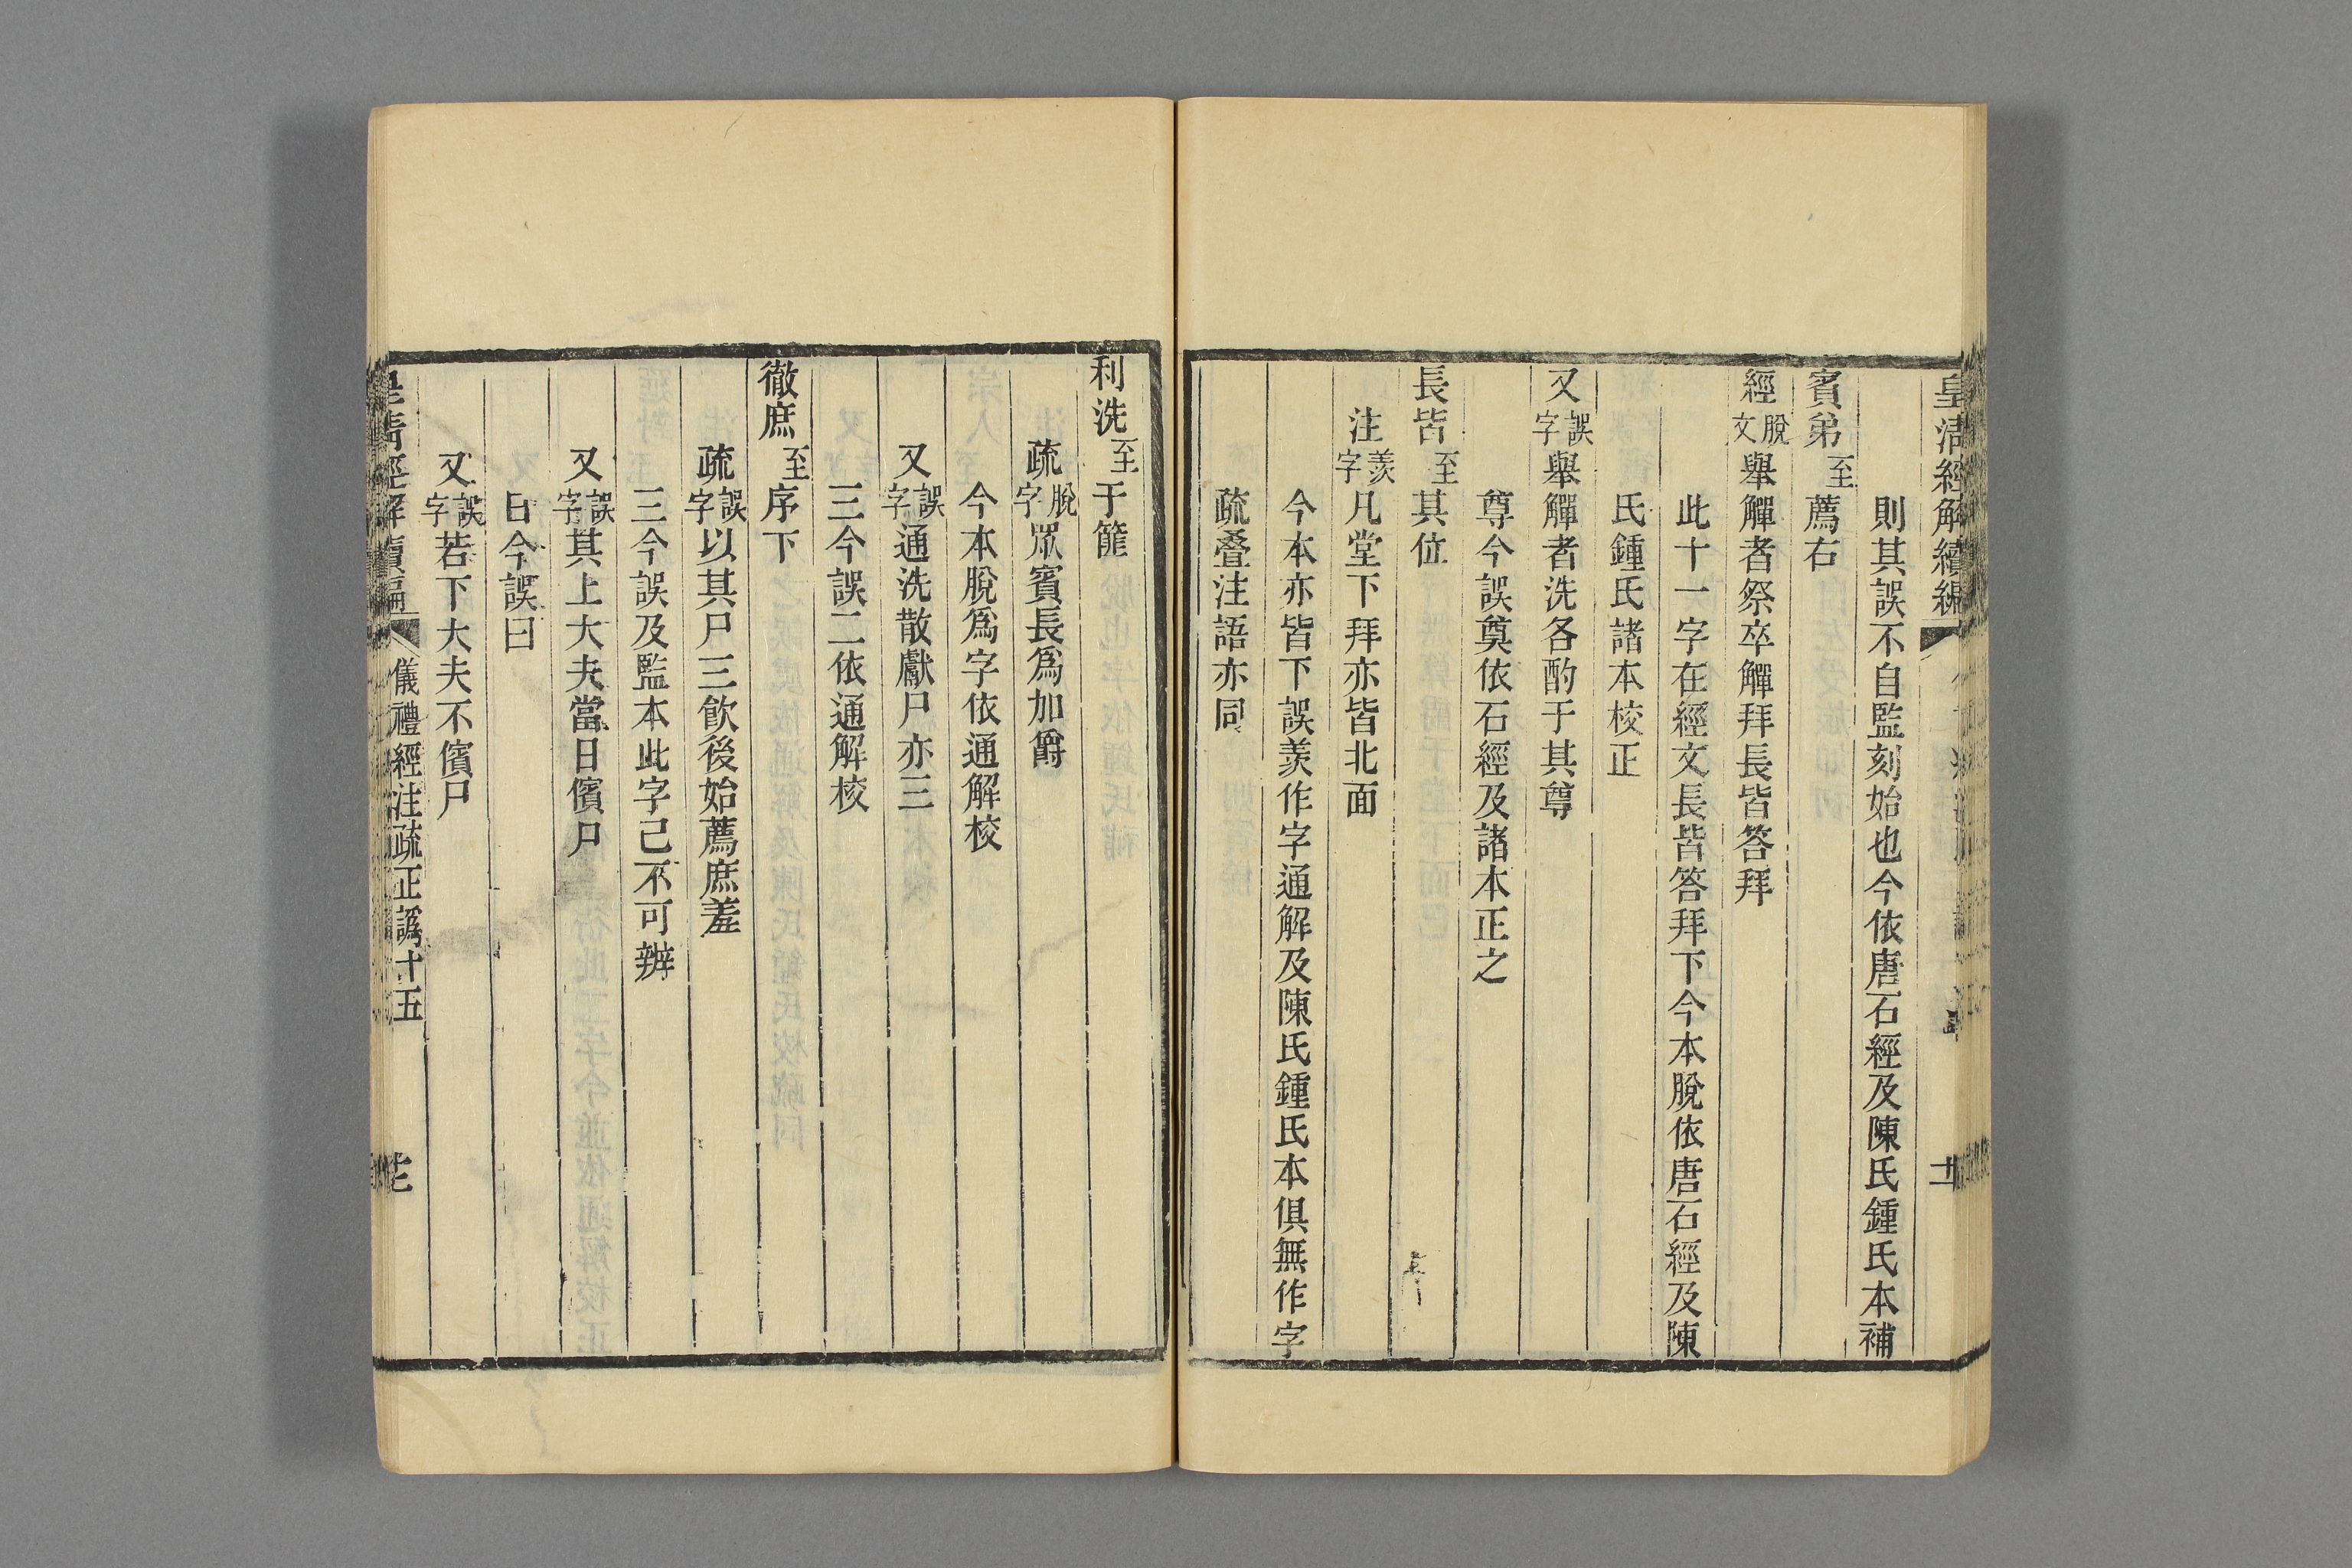 皇清經解續編
則其誤不自監刻始也今依唐石經及陳氏鍾氏本補
賓弟至薦右
經脫文舉觶者祭卒觶拜長皆答拜
此十一字在經文長皆答拜下今本脫依唐石經及陳
氏鍾氏諸本校正
又誤字舉觶者洗各酌于其尊
尊今誤奠依石經及諸本正之
長皆至其位
注羨字凡堂下拜亦皆北面
今本亦皆下誤羨作字通解及陳氏鍾氏本俱無作字
疏叠注語亦同
利洗至于篚
疏脫字眾賓長爲加爵
今本脫爲字依通解校
又誤字通洗散獻尸亦三
三今誤二依通解校
徹庶至序下
疏誤字以其尸三飮後始薦庶羞
三今誤及監本此字已不可辨
又誤字其上大夫當日儐尸
日今誤曰
又誤字若下大夫不儐尸
皇清經解續編
儀禮經注疏正譌十五